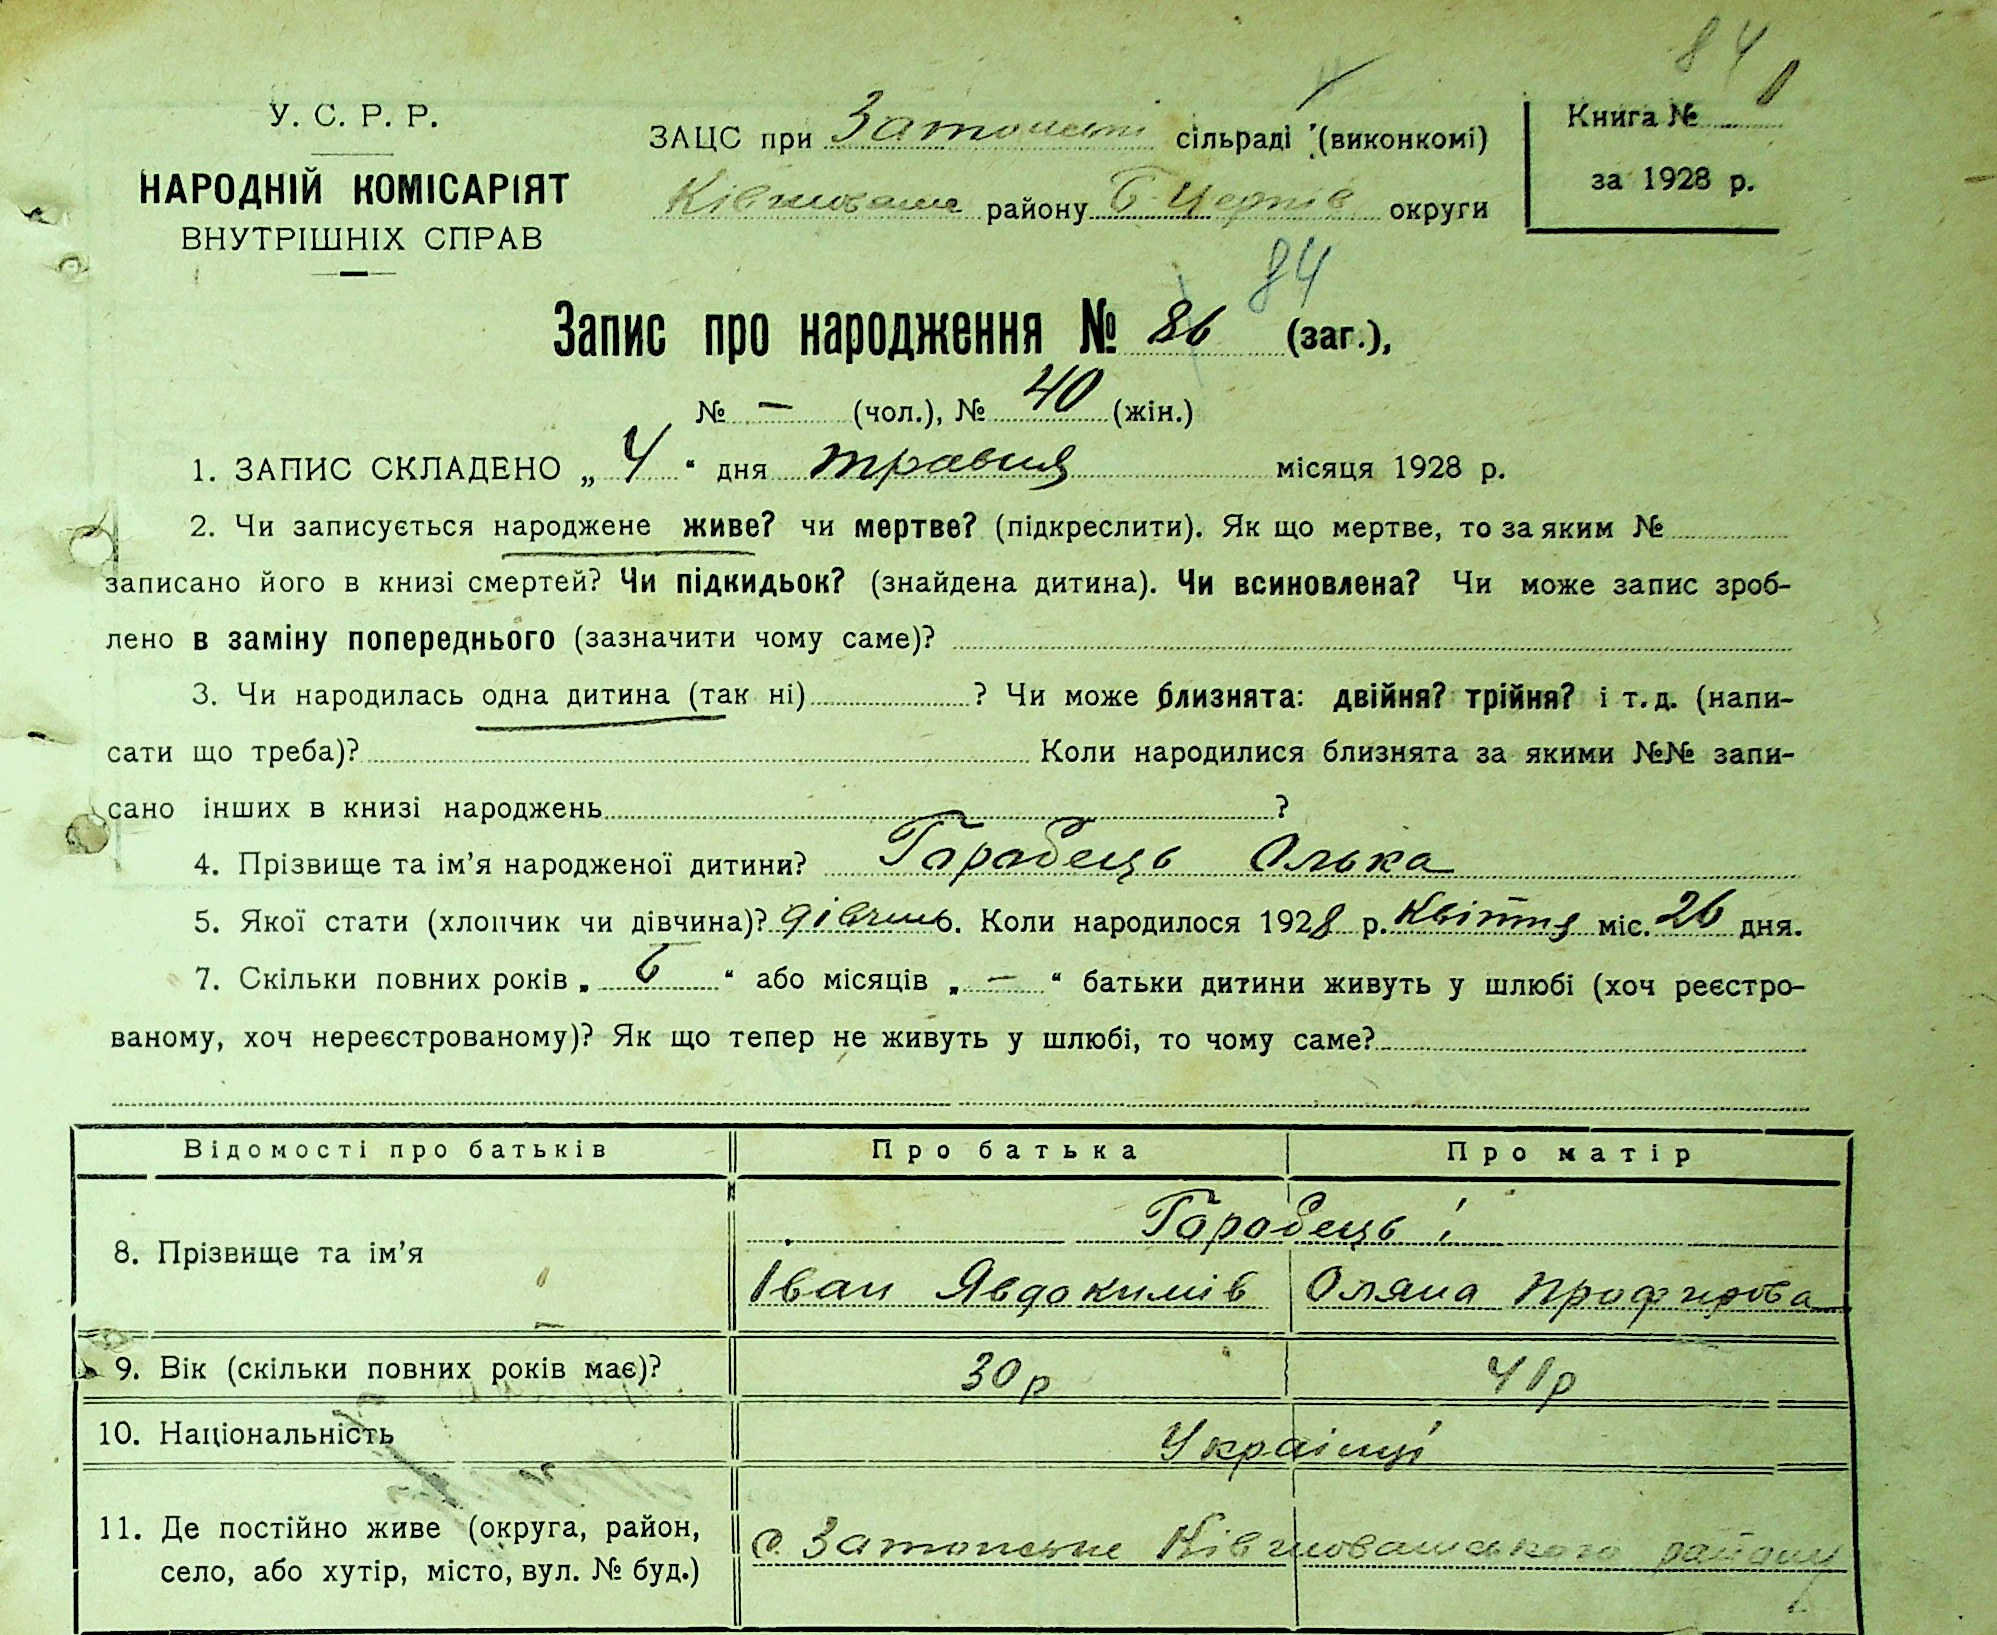 84
У. С. Р. Р.
НАРОДНІЙ КОМІСАРІЯТ
ВНУТРІШНІХ СПРАВ
ЗАЦС при сільраді (виконкомі)
району Б Церків округи
Книга № 1
за 1928 р.
84
Запис про народження № 86 (заг.),
№ — (чол.), № 40 (жін.)
1. ЗАПИС СКЛАДЕНО „ 4 “ дня травня місяця 1928 р.
2. Чи записується народжене живе? чи мертве? (підкреслити). Як що мертве, то за яким №
записано його в книзі смертей? Чи підкидьок? (знайдена дитина). Чи всиновлена? Чи може запис зроб-
лено в заміну попереднього (зазначити чому саме)?
3. Чи народилась одна дитина (так ні) ? Чи може близнята: двійня? трійня? і т. д. (напи-
сати що треба)? Коли народилися близнята за якими №№ запи-
сано інших в книзі народжень ?
4. Прізвище та ім’я народженої дитини? Горобець Олька
5. Якої стати (хлопчик чи дівчина)? 6. Коли народилося 1928 р. Квітня міс. 26 дня.
7. Скільки повних років „ 6 “ або місяців „ — “ батьки дитини живуть у шлюбі (хоч реєстро-
ваному, хоч нереєстрованому)? Як що тепер не живуть у шлюбі, то чому саме?
Відомості про батьків Про батька Про матір
Горобець і
8. Прізвище та ім’я
Іван Явдокимів Оляна Профирова
9. Вік (скільки повних років має)? 30 р 41 р
10. Національність Українці
11. Де постійно живе (округа, район,
село, або хутір, місто, вул. № буд.)
с. району